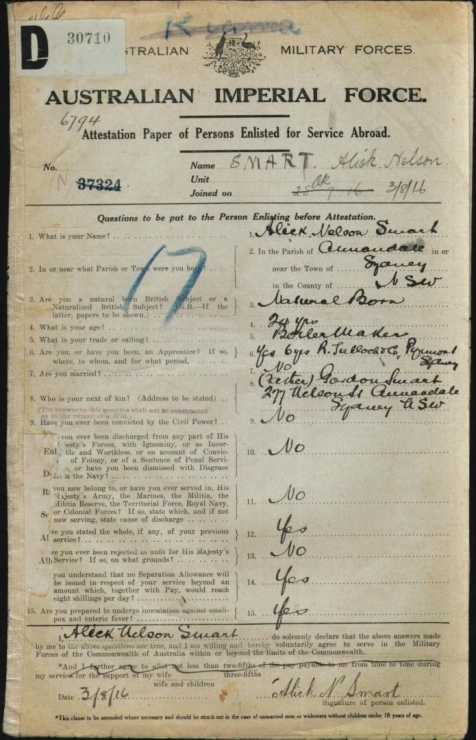 Kiama
D 30710
AUSTRALIAN MILITARY FORCES.
AUSTRALIAN IMPERIAL FORCE.
6794
Attestation Paper of Persons Enlisted for Service Abroad.
No. N 37324
Name SMART. Alick Nelson.
Unit
Joined on 3/8/16
Questions to be put to the Person Enlisting before Attestation.
1. What is your Name? 1. Alick Nelson Smart
2. In or near what Parish or Town were you born? 2. In the Parish of Annandale in or
near the Town of Sydney
in the County of N SW
17
3. Are you a natural born British Subject or a
Naturalized British Subject? (N.B.—If the
latter, papers to be shown.) 3. Natural Born
4. What is your age? 4. 24 yrs
5. What is your trade or calling? 5. Boiler Maker
6. Are you, or have you been, an Apprentice? If so,
where, to whom, and for what period. 6. Yes 6yrs R. Tulloch & Co, Pyrmont
Sydney
7. Are you married? 7. No
8. Who is your next of kin? (Address to be stated) 8. Gordon Smart
277 Nelson St Annandale
Sydney N SW
9. Have you ever been convicted by the Civil Power? 9. No
you ever been discharged from any part of His
jesty's Forces, with Ignominy, or as Incor-
ible and Worthless, or on account of Convic-
of Felony, or of a Sentence of Penal Servi-
or have you been dismissed with Disgrace
the Navy? 10. No
you now belong to, or have you ever served in, His
Majesty's Army, the Marines, the Militia, the
Militia Reserve, the Territorial Force, Royal Navy,
or Colonial Forces? If so, state which, and if not
now serving, state cause of discharge 11. No
ve you stated the whole, if any, of your previous
service? 12. Yes
ve you ever been rejected as unfit for His Majesty's
Service? If so, on what grounds? 13. No
you understand that no Separation Allowance will
be issued in respect of your service beyond an
amount which, together with Pay, would reach
eight shillings per day? 14. Yes
15. Are you prepared to undergo inoculation against small-
pox and enteric fever? 15. Yes
I, Alick Nelson Smart do solemnly declare that the above answers made
by me to the above questions are true, and I am willing and hereby voluntarily agree to serve in the Military
Forces of the Commonwealth of Australia within or beyond the limits of the Commonwealth.
*And I further agree to allot not less than two-fifths of the pay payable to me from time to time during
three-fifths
my service for the support of my wife
wife and children
Date 3/8/16 Alick N. Smart
Signature of person enlisted.
*This clause to be amended where necessary and should be struck out in the case of unmarried men or widowers without children under 18 years of age.